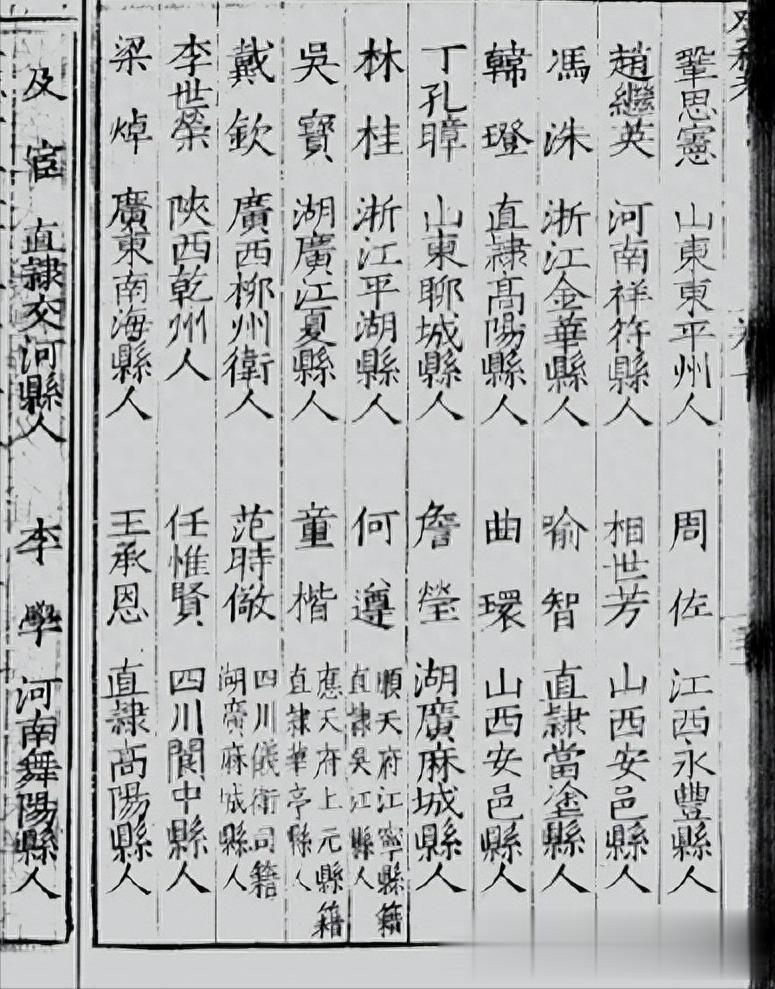 鞏思憲 山東東平州人 周佐 江西永豐縣人
趙繼英 河南祥符縣人 相世芳 山西安邑縣人
馮洙 浙江金華縣人 喻智 直隷當塗縣人
韓璒 直隷高陽縣人 曲環 山西安邑縣人
丁孔暲 山東聊城縣人 詹瑩 湖廣麻城縣人
林桂 浙江平湖縣人 何遵 順天府江寧縣籍直隷吳江縣人
吳寶 湖廣江夏縣人 童楷 應天府上元縣籍直隷華亭縣人
戴欽 廣西柳州衛人 范時儆 四川儀衛司籍湖廣麻城縣人
李世榮 陜西乾州人 任惟賢 四川閬中縣人
梁焯 廣東南海縣人 王承恩 直隷高陽縣人
及宦 直隷交河縣人 李學 河南舞陽縣人